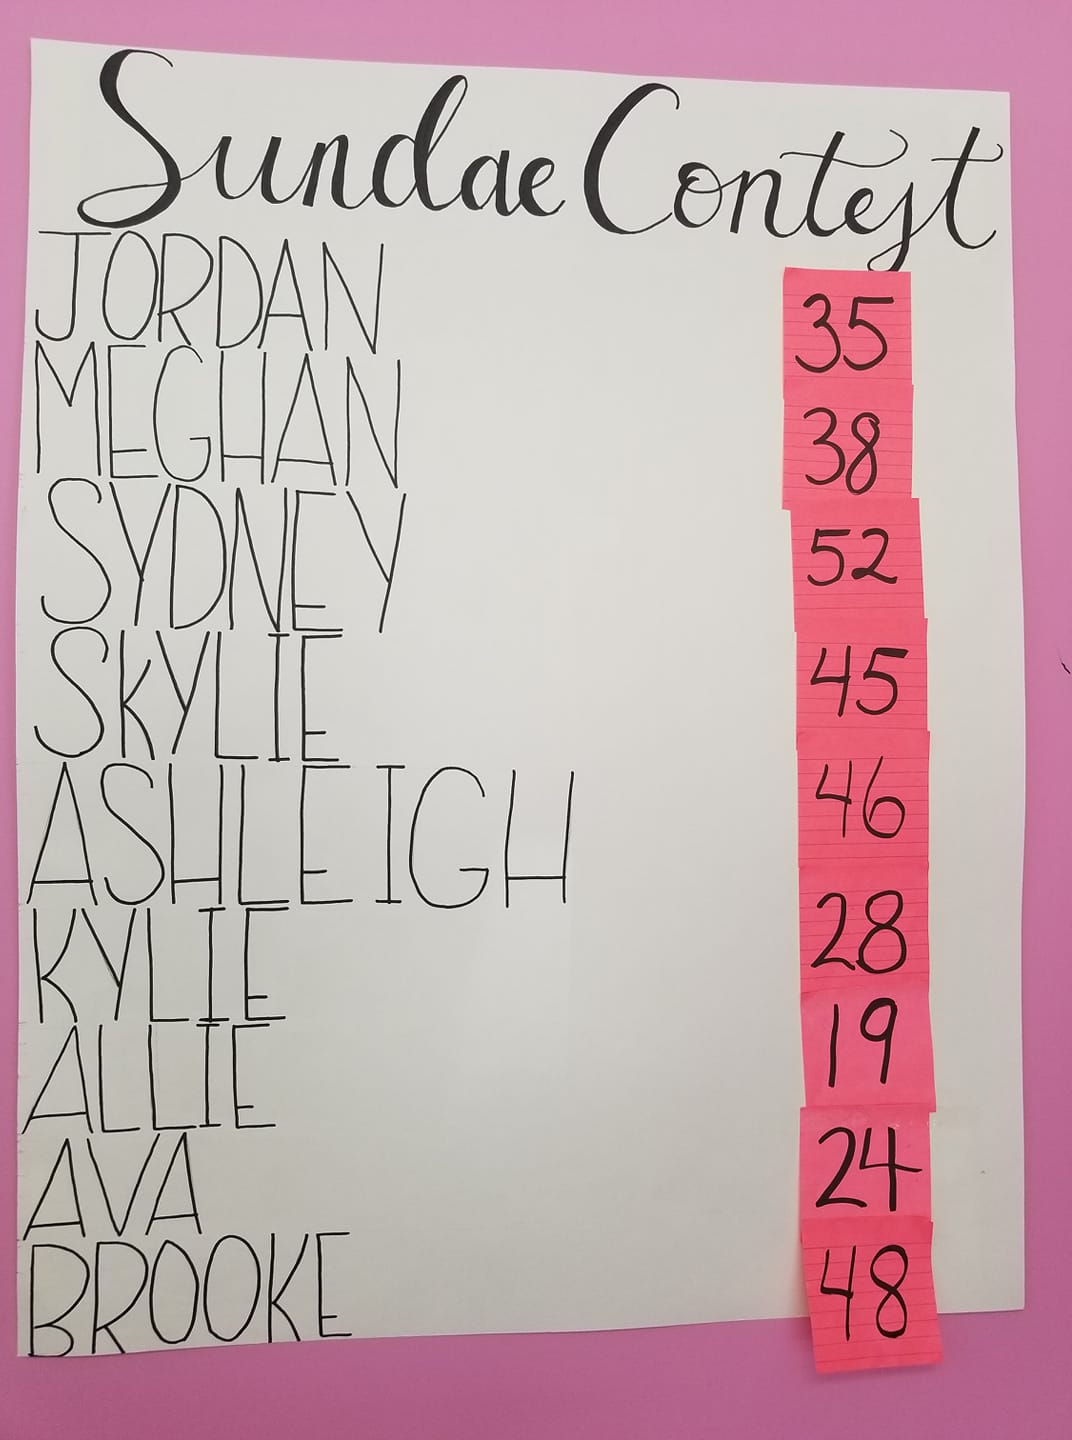 Sundae Contest
JORDAN 35
MEGHAN 38
SYDNEY 52
SKYLIE 45
ASHLEIGH 46
KYLIE 28
ALLIE 19
AVA 24
BROOKE 48